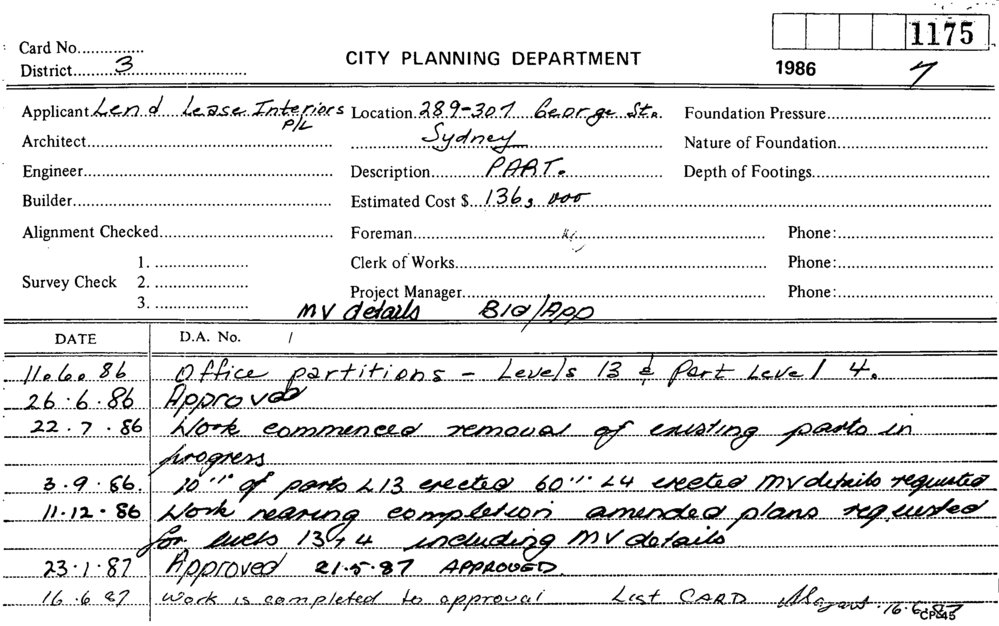 1175
Card No.
CITY PLANNING DEPARTMENT
District 3
1986 7
Applicant Lend Lease Interiors P/L Location 289-307 George St. Foundation Pressure
Architect Sydney Nature of Foundation
Engineer Description PART. Depth of Footings
Builder Estimated Cost $ 136,000
Alignment Checked Foreman Phone:
1.
Clerk of Works Phone:
Survey Check 2.
Project Manager Phone:
3.
MV details Bld/App
DATE D.A. No. /
11.6.86 Office partitions - Levels 13 & Part Level 4.
26.6.86 Approved
22.7.86 Work commenced removal of existing parts in
progress
3.9.86. of parts L13 erected L4 erected MV details requested
11.12.86 Work nearing completion amended plans requested
for levels 13+4 including MV details
23.1.87 Approved 21.5.87 APPROVED.
16.6.87 Work is completed to approval Last CARD 16.6.87
CP545